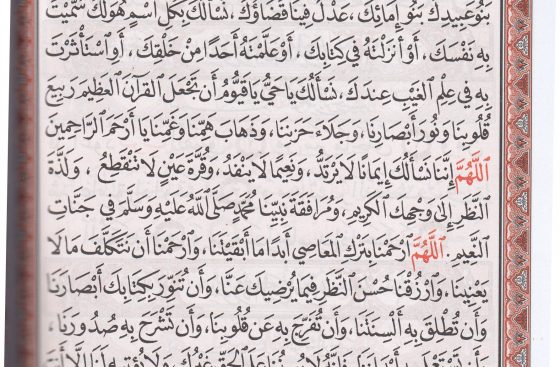 بَنُو عَبِيدِكَ بَنُو إِمَائِكَ، عَدْلٌ فِينَا قَضَاؤُكَ، نَسْأَلُكَ بِكُلِّ اسْمٍ هُوَ لَكَ سَمَّيْتَ
بِهِ نَفْسَكَ، أَوْ أَنْزَلْتَهُ فِي كِتَابِكَ، أَوْ عَلَّمْتَهُ أَحَدًا مِنْ خَلْقِكَ، أَوِ اسْتَأْثَرْتَ
بِهِ فِي عِلْمِ الْغَيْبِ عِنْدَكَ، نَسْأَلُكَ يَا حَيُّ يَا قَيُّومُ أَنْ تَجْعَلَ الْقُرْآنَ الْعَظِيمَ رَبِيعَ
قُلُوبِنَا وَنُورَ أَبْصَارِنَا، وَجَلَاءَ حَزَنِنَا، وَذَهَابَ هَمِّنَا وَغَمِّنَا يَا أَرْحَمَ الرَّاحِمِينَ
اللَّهُمَّ إِنَّا نَسْأَلُكَ إِيمَانًا لَا يَرْتَدُّ، وَنَعِيمًا لَا يَنْفَدُ، وَقُرَّةَ عَيْنٍ لَا تَنْقَطِعُ، وَلَذَّةَ
النَّظَرِ إِلَى وَجْهِكَ الْكَرِيمِ، وَمُرَافَقَةَ نَبِيِّنَا مُحَمَّدٍ صَلَّى اللهُ عَلَيْهِ وَسَلَّمَ فِي جَنَّاتِ
النَّعِيمِ. اللَّهُمَّ ارْحَمْنَا بِتَرْكِ الْمَعَاصِي أَبَدًا مَا أَبْقَيْتَنَا، وَارْحَمْنَا أَنْ نَتَكَلَّفَ مَا لَا
يَعْنِينَا، وَارْزُقْنَا حُسْنَ النَّظَرِ فِيمَا يُرْضِيكَ عَنَّا، وَأَنْ تُنَوِّرَ بِكِتَابِكَ أَبْصَارَنَا
وَأَنْ تُطْلِقَ بِهِ أَلْسِنَتَنَا، وَأَنْ تُفَرِّجَ بِهِ عَنْ قُلُوبِنَا، وَأَنْ تَشْرَحَ بِهِ صُدُورَنَا،